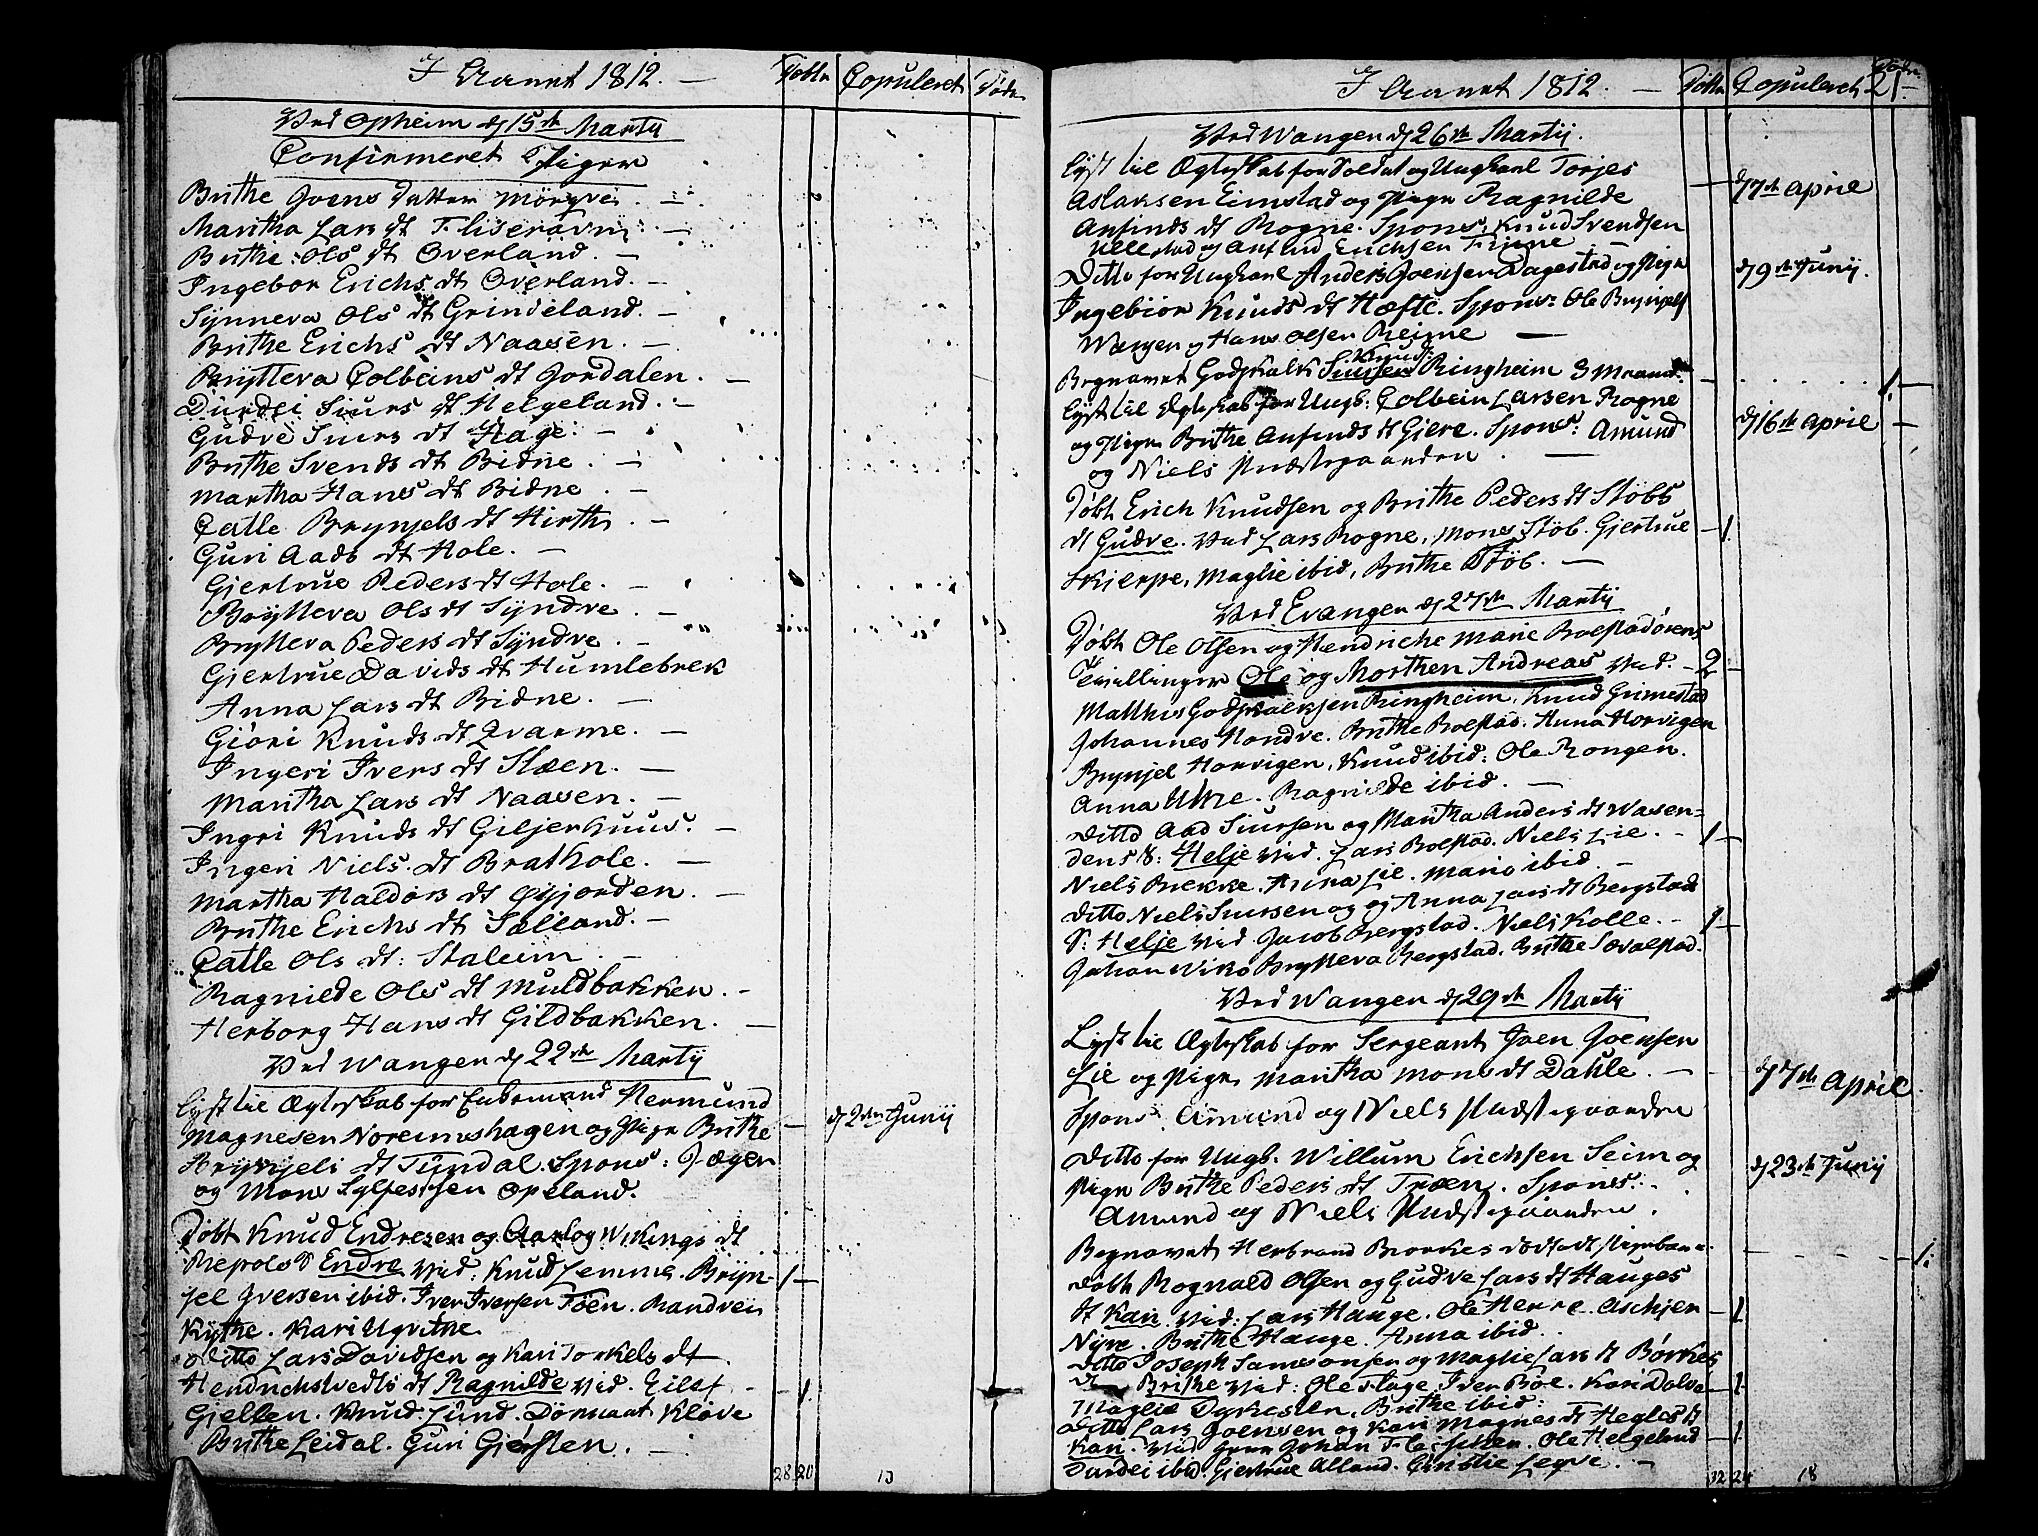 I Aaret 1812. — Døbte Copuleret Døde
Ved Opheim d 15de Martij
Confirmeret Piger
Brithe Joens Datter Mörqve
Martha Lars dt
Brithe Ols dt Överland. —
Ingebor Erichs dt Överland. —
Synneva Ols dt Grindeland. —
Brithe Erichs dt Naasen. —
Brytteva Colbeins dt Jordalen. —
Durdei Siurs dt Helgeland. —
Gudve Siurs dt Hage. —
Brithe Svends dt Bidne. —
Martha Hans dt Bidne. —
Catle Brynjels dt Hirth. —
Guri Aads dt Hole. —
Gjertrue Peders dt Hole. —
Brytteva Ols dt Syndre. —
Brytteva Peders dt Syndve. —
Gjertrue Davids dt Humlebrek
Anna Lars dt Bidne. —
Giöri Knuds dt Qvarme. —
Ingeri Ivers dt Slæen. —
Martha Lars dt Naasen. —
Ingri Knuds dt Giljerhuus. —
Ingeri Niels dt Brathole. —
Martha Haldors dt Øyjorden. —
Brithe Erichs dt Sælland. —
Catle Ols dt: Staleim —
Ragnilde Ols dt Muldbakken. —
Herborg Hans dt Gildbakken. —
Ved Wangen d 22de Martij
Lyst til Ægteskab for Enkemand Hermund
Magnesen Noreimshagen og Pige Brithe — d 2den Junij
Brynjels dt Tyndal. Spons: Jæger
og Mons Sylfestsen Opeland.
Døbt Knud Endresen og Aarlog Wikings dt
Repols S Endre Vid: Knud Lemme. Bryn- 1 —
jel Iversen ibid. Iver Iversen Töen. Randvei
Kythe. Kari Ugvithe.
Ditto Lars Davidsen og Kari Torkels dt
Hendrichstvedts dt Ragnilde Vid. Eilef — 1.
Gjellen. Knud Lund. Dörmaat Klöve
Brithe Leidal. Guri Gjersten. —
28 20 13
I Aaret 1812. — Døbte Copuleret Døde 21
Ved Wangen d 26de Martij.
Lyst til Ægteskab for Soldat og Ungkarl Torjes
Aslaksen Eimstad og Pige Ragnilde — d 7de April
Anfinds dt Rogne. Spons: Knud Svendsen
Ullestad og Anfind Erichsen Finne —
Ditto for Ungkarl Anders Joensen Dagestad og Pige d 9de Junij.
Ingebior Knuds dt Hæfte. Spons: Ole Brynjels
Wangen og Hans Olsen Reime —
Begravet Godskalk Knuds: Ringheim 3 Maaned. — 1. —
Lyst til Ægteskab for Ungk: Colbein Larsen Rogne
og Pige Brithe Anfinds dt Giere. Spons: Amund d 16de April —
og Niels Præstegaarden. —
Døbt Erich Knudsen og Brithe Peders dt Stöbs
dt Gudve. Vid Lars Rogne, Mons Stöb. Gjertrue — 1.
Skierpe, Maglie ibid, Brithe Stöb. —
Ved Evangen d 27de Martij
Døbt Ole Olsen og Hendriche Marie Bolstadörens
Tvillinger Ole og Morthen Andreas Vid. — 2 —
Matthis Godskalksen Ringheim, Knud Grimestad
Johannes Nondve. Brithe Bolstad. Anna Horvigen
Brynjel Horvigen, Knud ibid: Ole Rongen.
Anna Uthe. Ragnilde ibid. —
Ditto Aad Siursen og Martha Anders dt Wasen-
dens S: Helje Vid. Lars Bolstad. Niels Lie. — 1 —
Niels Brekke. Anna Lie. Mario ibid. —
Ditto Niels Siursen og og Anna Lars dt Bergstad
S: Helje Vid Jacob Bergstad. Niels Kolle. — 1 —
Johan Wiko Brytteva Bergstad. Brithe Sævalstad.
Ved Wangen d 29de Martij
Lyst til Ægteskab for Sergeant Joen Joensen
Lie og Pige Martha Mons dt Dahle. — d 7de April
Spons: Amund og Niels Præstegaarden
Ditto for Ungk. Willum Erichsen Seim og d 23de Junij
Pige Brithe Peders dt Træen. Spons:
Amund og Niels Præstegaarden.
Begravet Herbrand Biorkes dödfödt Pigebarn. — 1.
Døbt Rognald Olsen og Gudve Lars dt Hauges
dt Kari Vid: Lars Hauge. Ole Herre. Aschjer — 1
Nyre. Brithe Hauge. Anna ibid.
Ditto Joseph Samsonsen og Maglie Lars dt Börkes
dt Brithe Vid: Ole Flage Iver Böe. Kari Dolve — 1
Maglie Dukesten, Brithe ibid:
Ditto Lars Joensen og Kari Magnes dt Hegles dt
Kari. Vid Johan Fleischer. Ole Helgeland — 1.
Durdei ibid. Gjertrue Alland. Legve. —
32 24 18